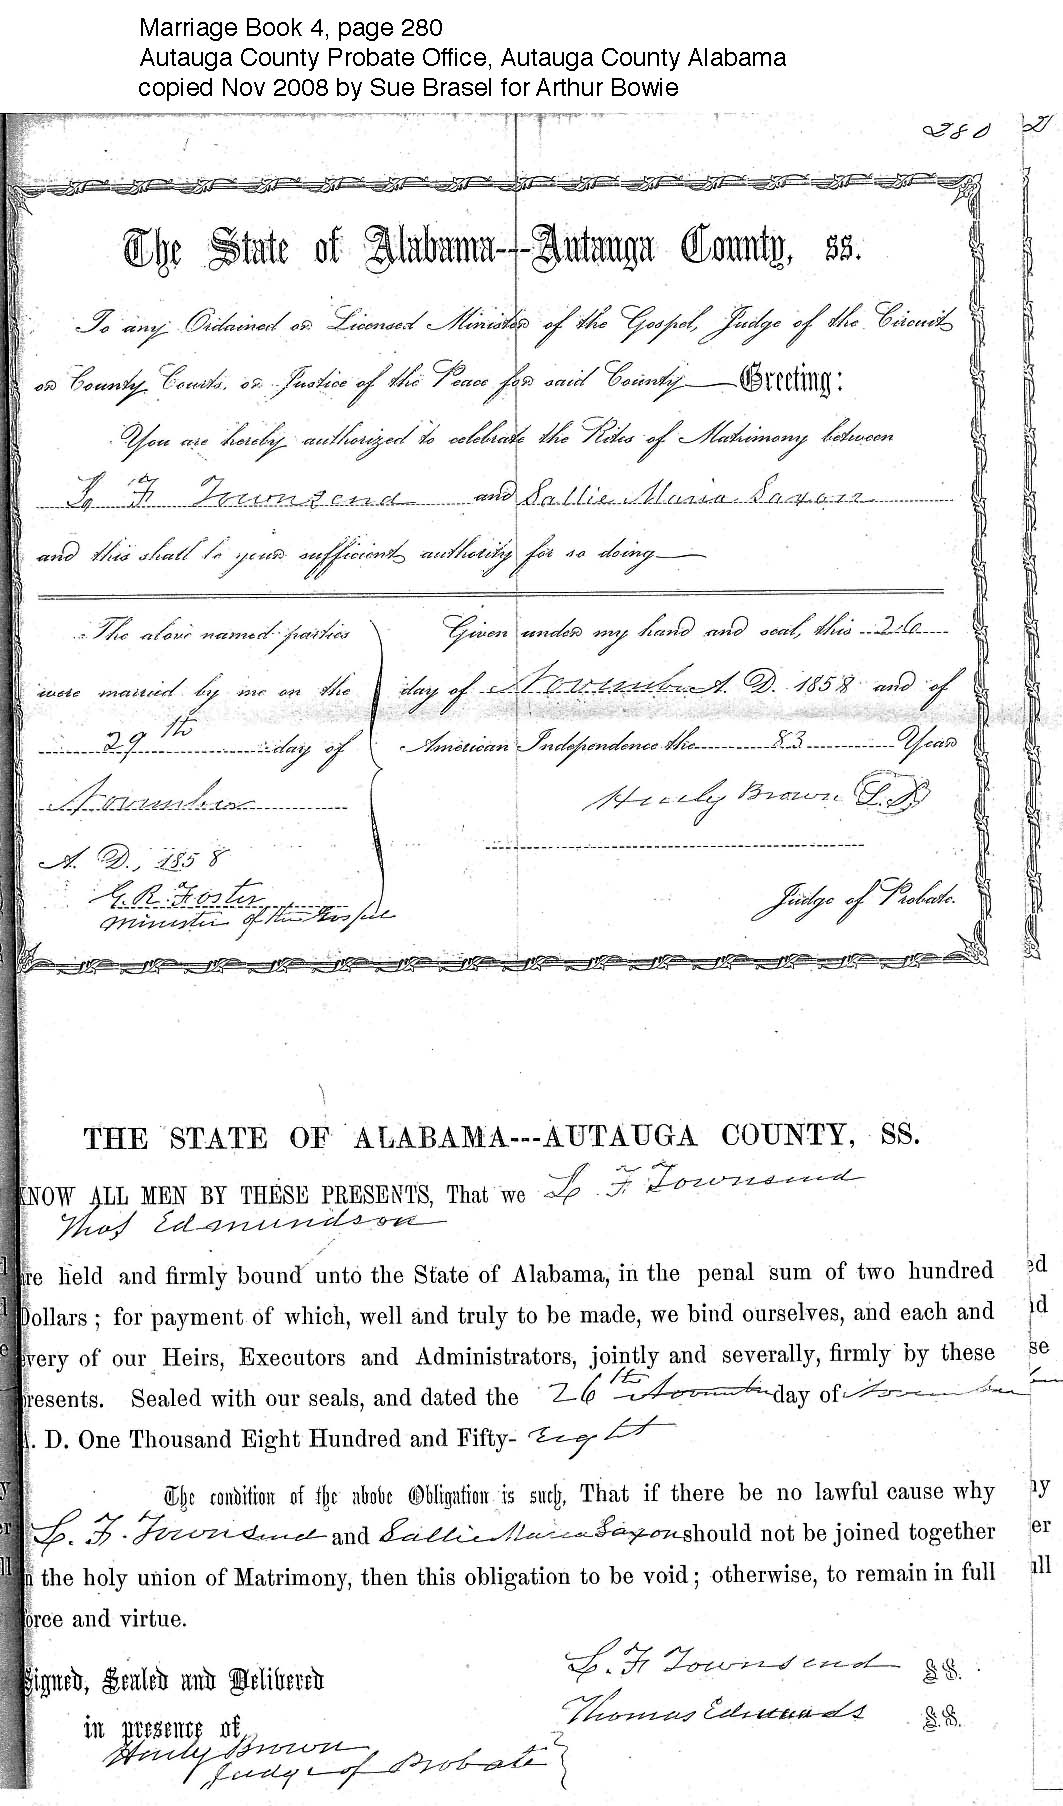 Marriage Book 4, page 280
Autauga County Probate Office, Autauga County Alabama
copied Nov 2008 by Sue Brasel for Arthur Bowie
280
The State of Alabama---Autauga County, ss.
To any Ordained or Licensed Minister of the Gospel, Judge of the Circuit
or County Courts, or Justice of the Peace for said County—Greeting:
You are hereby authorized to celebrate the Rites of Matrimony between
L F Townsend and Sallie Maria Saxon
and this shall be your sufficient authority for so doing—
The above named parties
were married by me on the
29th day of
November
A. D., 1858
G. R. Foster
Minister of the Gospel
Given under my hand and seal, this 26
day of November A. D. 1858 and of
American Independence the 83 Year
Henly Brown L.S.
Judge of Probate.
THE STATE OF ALABAMA---AUTAUGA COUNTY, SS.
KNOW ALL MEN BY THESE PRESENTS, That we L F Townsend
Thos Edmundson
are held and firmly bound unto the State of Alabama, in the penal sum of two hundred
Dollars; for payment of which, well and truly to be made, we bind ourselves, and each and
every of our Heirs, Executors and Administrators, jointly and severally, firmly by these
presents. Sealed with our seals, and dated the 26th November day of November
A. D. One Thousand Eight Hundred and Fifty- Eight
The condition of the above Obligation is such, That if there be no lawful cause why
L. F. Townsend and Sallie Maria Saxon should not be joined together
in the holy union of Matrimony, then this obligation to be void; otherwise, to remain in full
force and virtue.
Signed, Sealed and Delivered
in presence of
Henly Brown
Judge of Probate
L. F Townsend SS.
Thomas Edmunds SS.